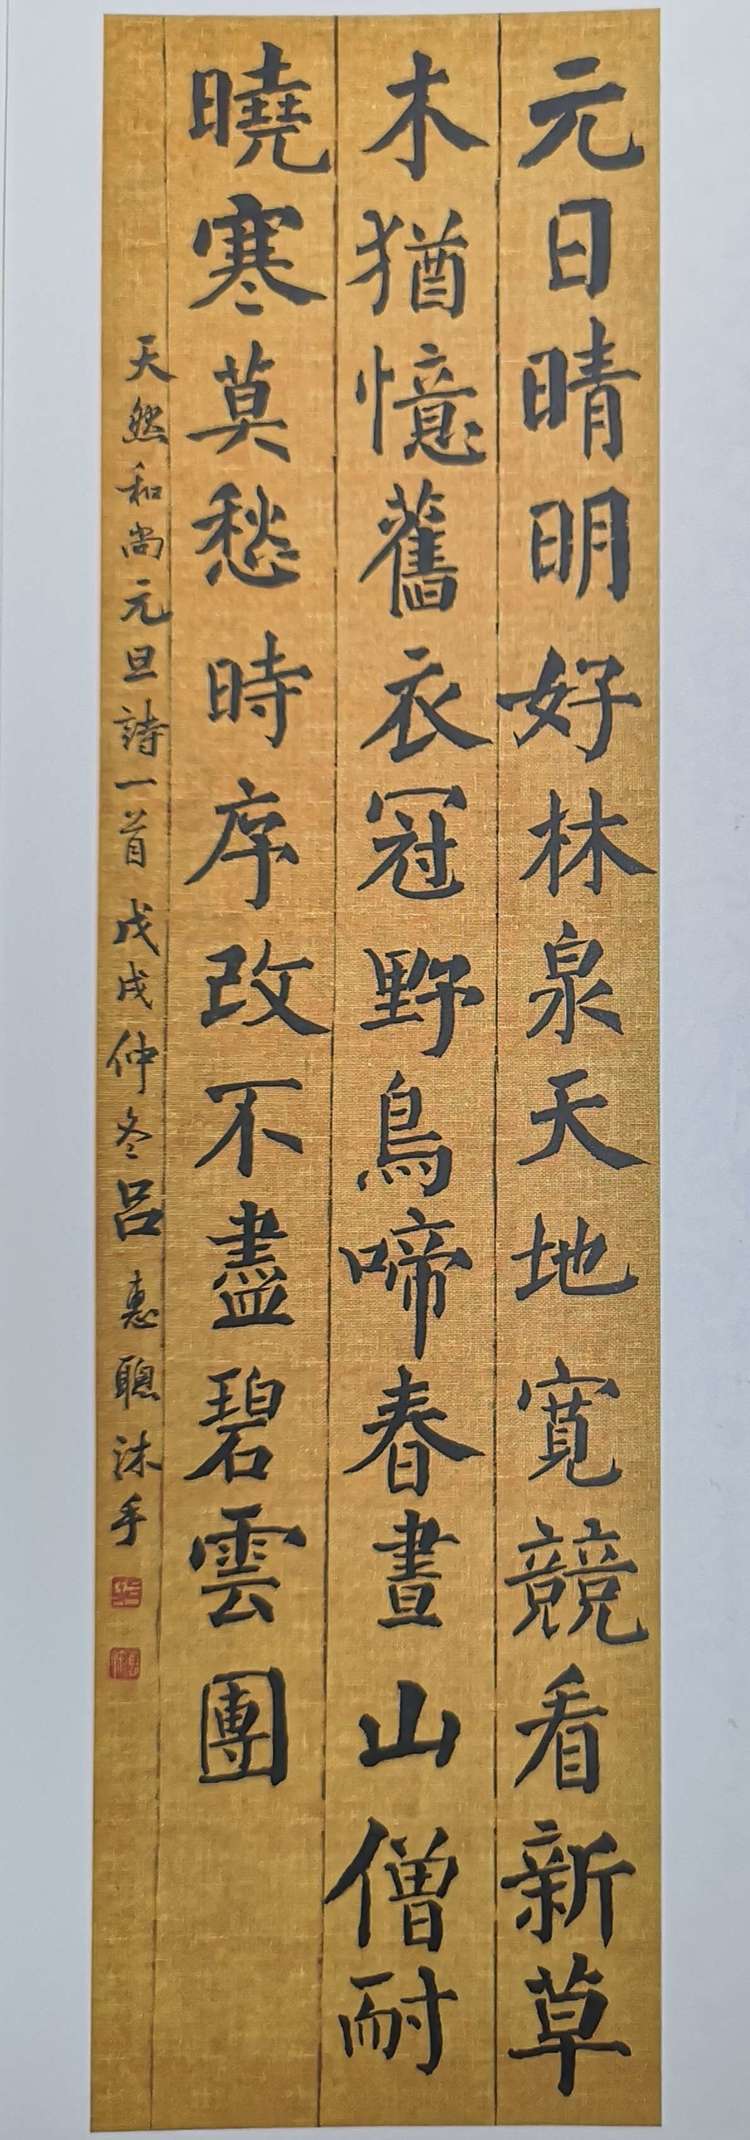 元日晴明好林泉天地寬競看新草
木猶憶舊衣冠野鳥啼春晝山僧耐
曉寒莫愁時序改不盡碧雲團
天然和尚元旦詩一首戊戌仲冬呂惠聰沐手